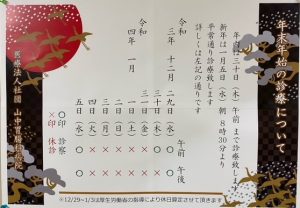 年末年始の診療について
年内は三十日(木)午前まで診療致します
新年は一月五日(水)朝8時30分より
平常通り診療致します
詳しくは左記の通りです
午前 午後
令和三年 十二月 二九日(水) ○ ○
三十日(木) ○ ×
三一日(金) × ×
令和四年 一月 一日(土) × ×
二日(日) × ×
三日(月) × ×
四日(火) × ×
五日(水) ○ ○
○印 診察
×印 休診
医療法人社団 山中胃腸科病院
※12/29~1/3は厚生労働省の指導により休日算定させて頂きます